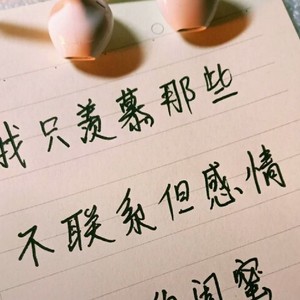 我只羡慕那些
不联系但感情
闺蜜